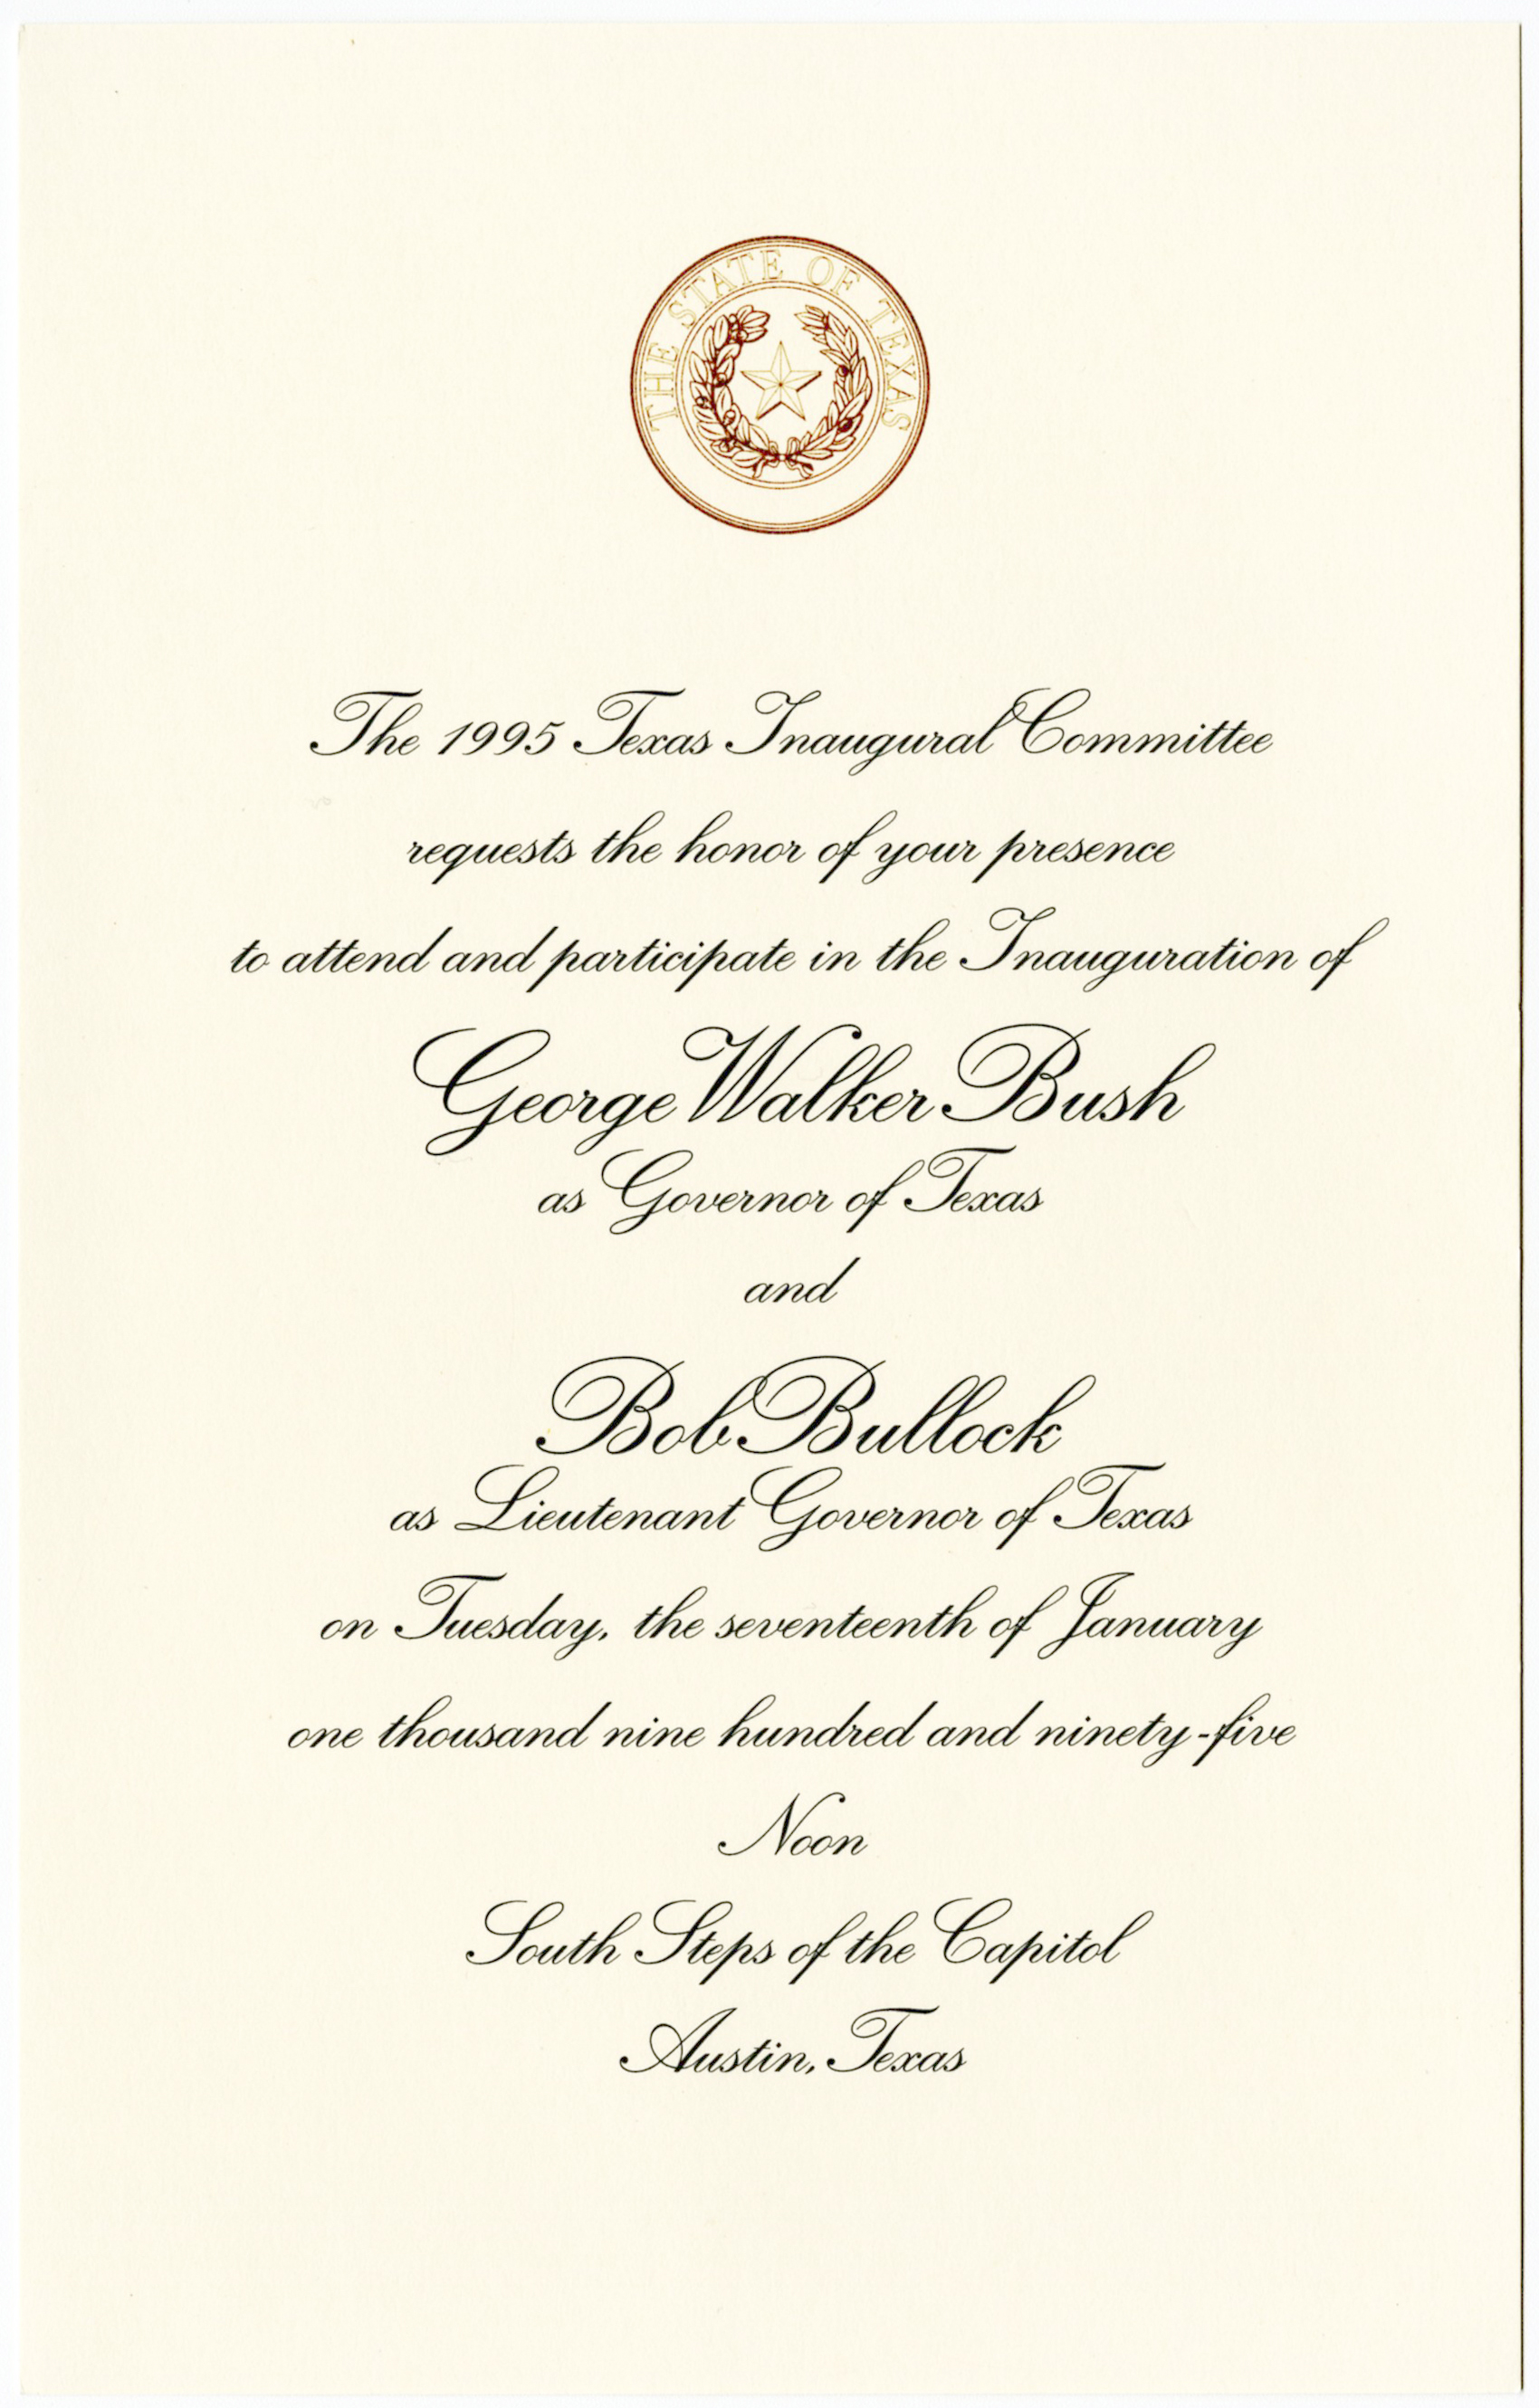 THE STATE OF TEXAS
The 1995 Texas Inaugural Committee
requests the honor of your presence
to attend and participate in the Inauguration of
George Walker Bush
as Governor of Texas
and
Bob Bullock
as Lieutenant Governor of Texas
on Tuesday, the seventeenth of January
one thousand nine hundred and ninety-five
Noon
South Steps of the Capitol
Austin, Texas